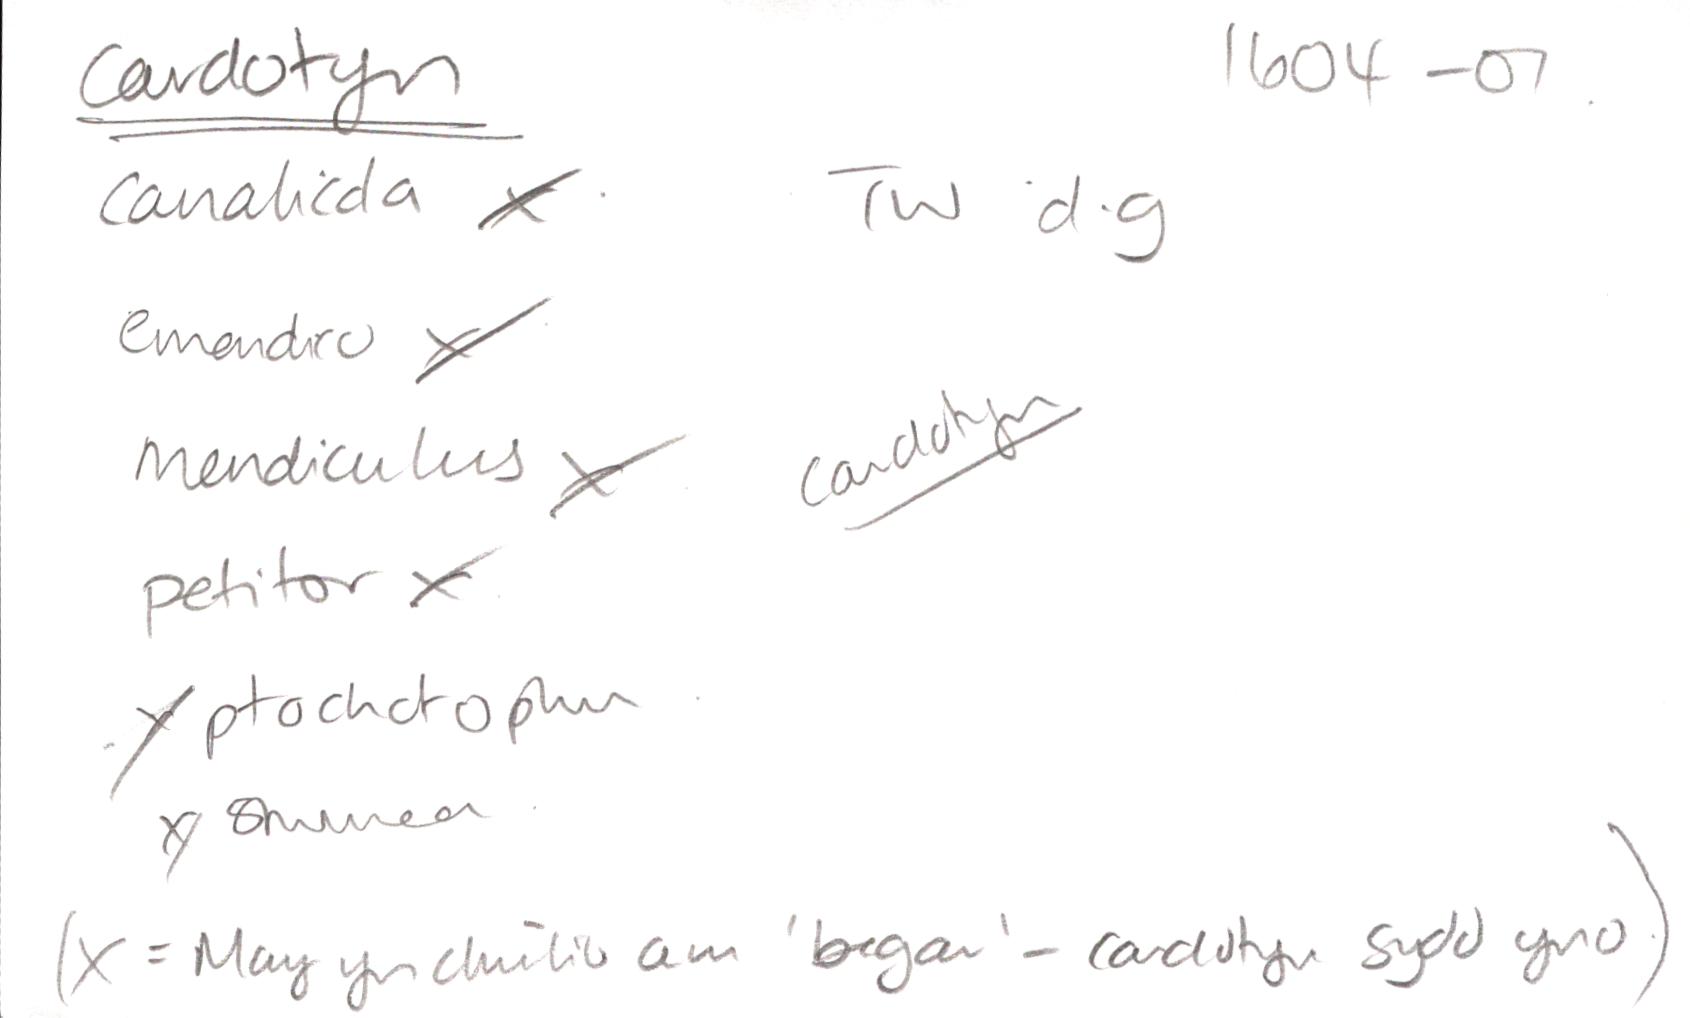 Cardotyn 1604-07.
Canalicda x TW d.g
emendico x
Mendiculus x cardotyn
petitor x
x ptochotrophium
x
(x = Mary yn chwilio am 'beggar' - cardotyn sydd yno.)